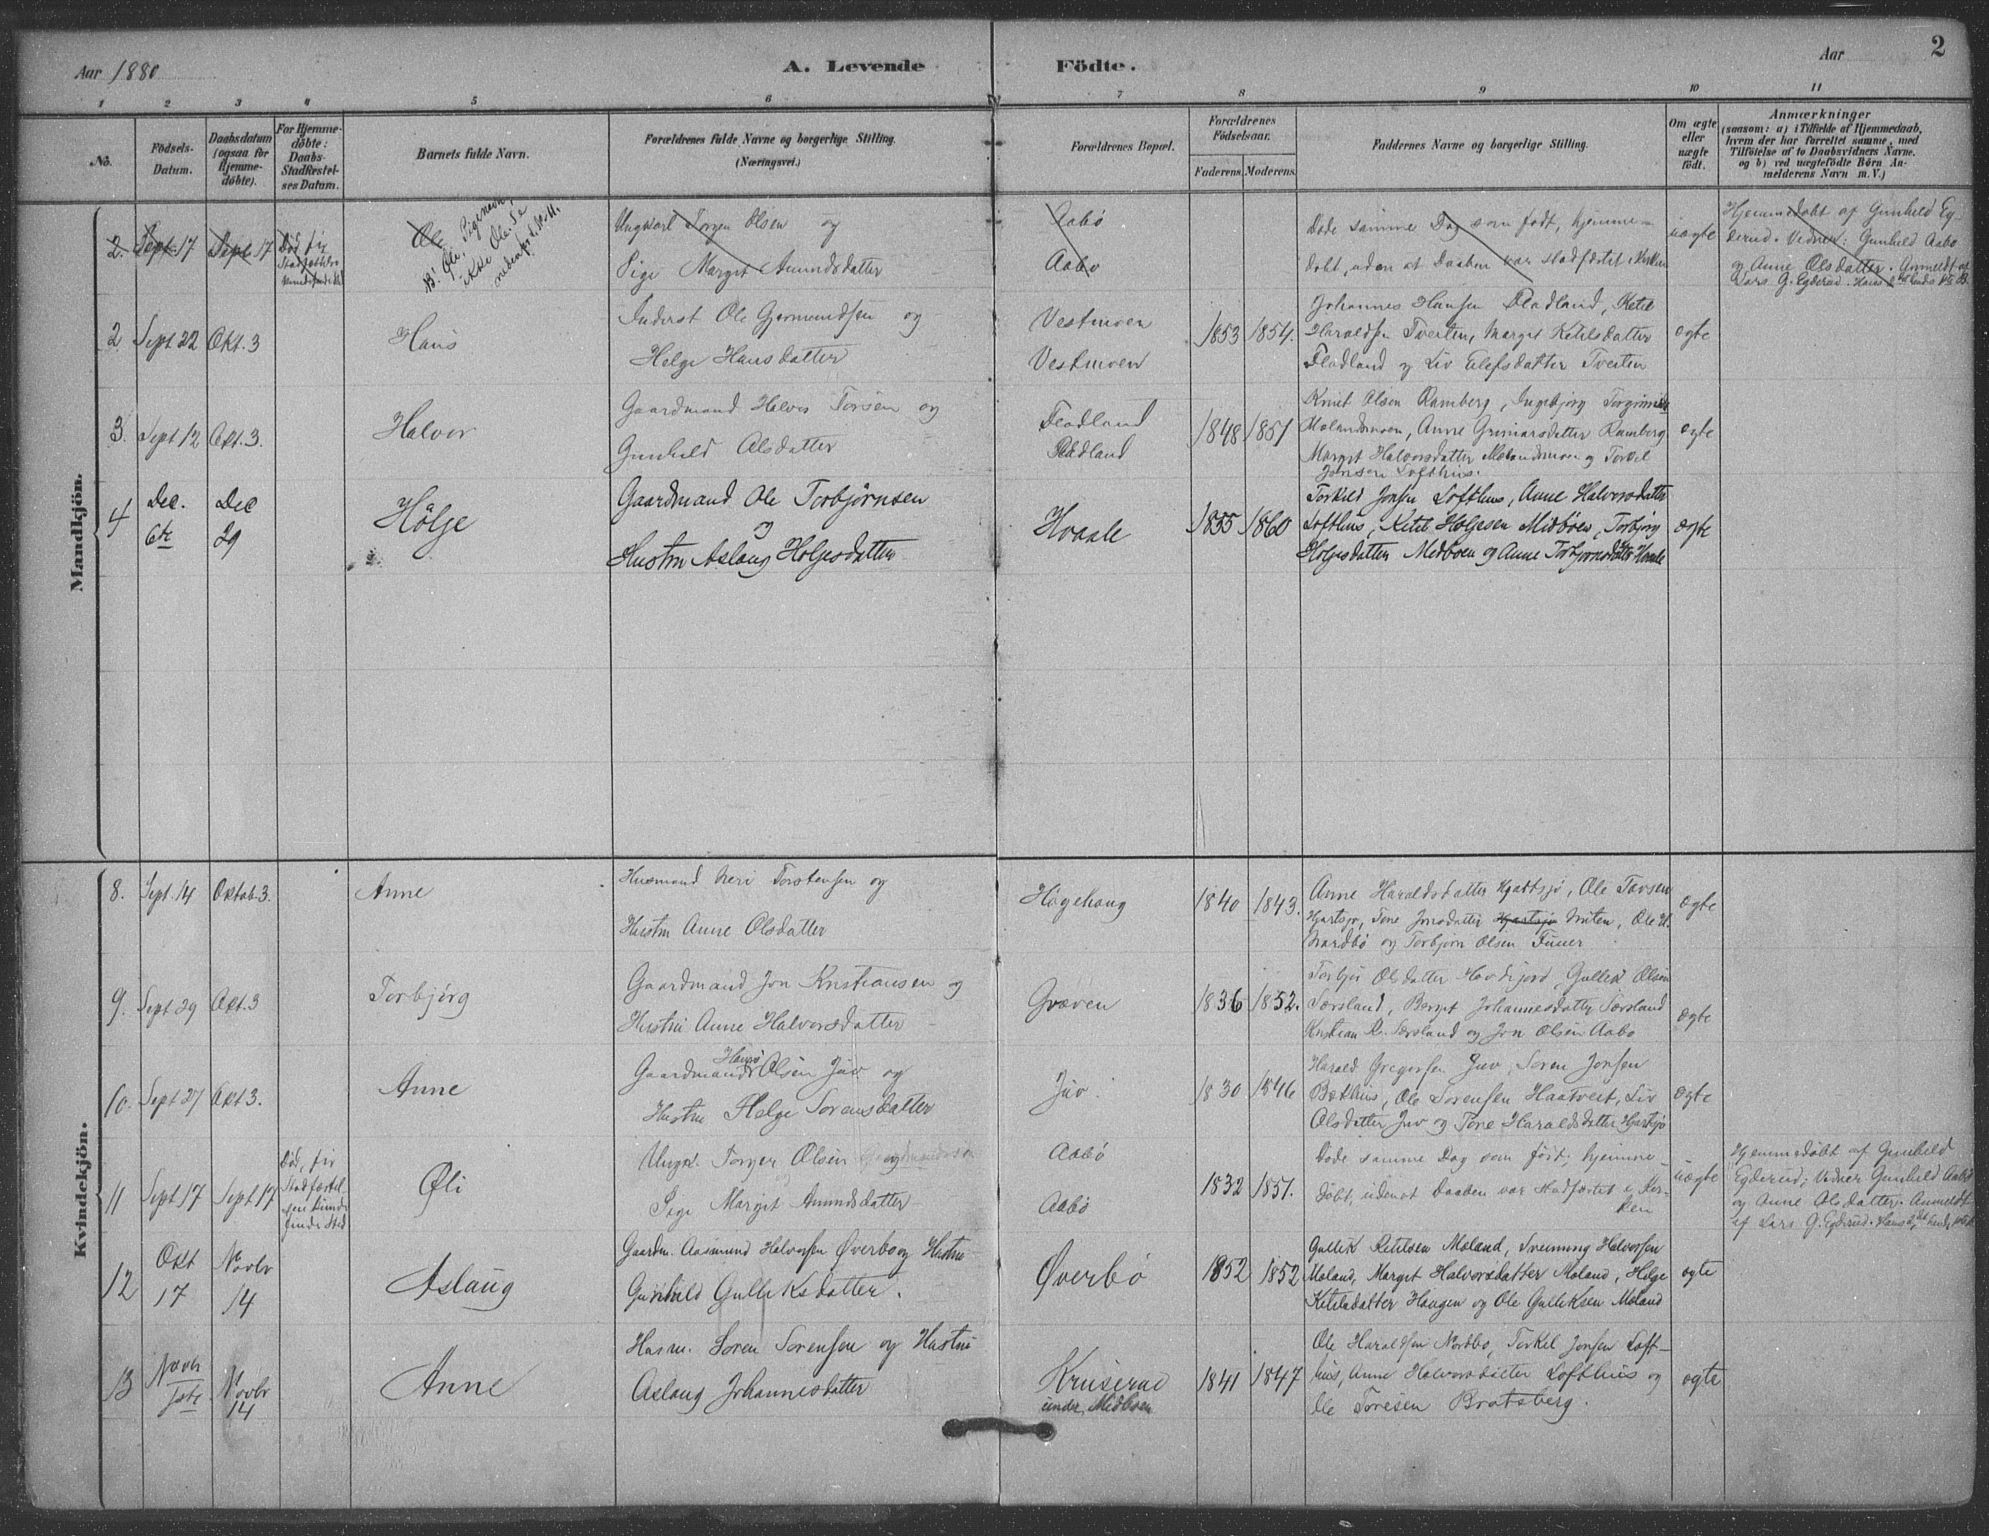 Aar 1880
A. Levende
Födte.
Aar
2
1 2 3 4 5 6 7 8 9 10 11
No.
Födsels-Datum.
Daabsdatum (ogsaa for Hjemme-döbte).
For Hjemme-döbte: Daabs-Stadfæstel-ses Datum.
Barnets fulde Navn.
Forældrenes fulde Navne og borgerlige Stilling. (Næringsvei.)
Forældrenes Bopæl.
Forældrenes Födselsaar.
Faderens. Moderens.
Faddernes Navne og borgerlige Stilling.
Om ægte eller uægte födt.
Anmærkninger (saasom: a) i Tilfælde af Hjemmedaab, hvem der har forrettet samme, med Tilföielse af to Daabsvidners Navne, og b) ved uægtefödte Börn An-melderens Navn m. V.)
Mandkjön.
2. Sept. 17 Sept 17 Ole
Ungkarl Torger Olsen og
Pige Margit Amundsdatter
Aabø
Aabø
Døde samme Dag som født, hjemme-
døbt, uden at Daaben var stadfæstet i Kirken
uægte
Hjemmedøbt af Gunhild Eg-
derud. Vidner: Gunhild Aabø
og Anne Olsdatter. Anmeldt af
Lars G. Egderud.
2 Sept 22 Okt. 3 Hans
Inderst Ole Gjermundsen og
Helge Hansdatter
Vestmoen
Vestmoen
1853 1854.
Johannes Hansen Fladland, Ketil
Haraldsen Tveiten, Margit Ketilsdatter
Fladland og Liv Olefsdatter Tveiten
ægte
3. Sept 12 Okt. 3. Halvor
Gaardmand Halvor Torsen og
Gunhild Olsdatter
Fladland
Fladland
1848 1851
Knut Olsen Ramberg, Ingebjørg
Molandsmoen, Anne Gunnarsdatter Ramberg
Margit Halvorsdatter Molandsmoen og Torkil
Jonsen Lofthus.
ægte
4 Dec. 6te Dec 29 Hölje
Gaardmand Ole Torbjörnsen
og
Hustru Aslaug Holjesdatter
Hvaale
1855 1860
Torkild Jonsen Lofthus, Anne Halvorsdatter
Lofthus, Ketil Holjesen Midböen, Torbjörg
Holjesdatter Midböen og Anne Torbjörnsdatter Hvaale
ægte
Kvindekjön.
8. Sept. 14 Oktob. 3. Anne
Husmand Neri Torstensen og
Hustru Anne Olsdatter
Høgehaug
1840 1843.
Anne Haraldsdatter Hjartsjø, Ole Tovsen
Hjartsjø, Tone Jonsdatter Hjartsjø Nuten, Ole H.
Nordbø og Torbjørn Olsen
ægte
9. Sept 29 Okt. 3 Torbjörg
Gaardmand Jon Kristiansen og
Hustru Anne Halvorsdatter
Græven
1836 1852.
Torbjör Olsdatter Hovdejord, Gullik Olsen
Særsland, Berget Johannesdatter Særsland
Kristian K. Særsland og Jon Olsen Aabø
ægte
10. Sept 27 Okt 3. Anne
Gaardmand Hans Olsen Juv og
Hustru Helge Sorensdatter
Juv.
1830 1846
Harald Gregorsen Juv, Soren Jonsen
Bækhus, Ole Sorensen Haatveit, Liv
Olsdatter Juv og Tone Haraldsdatter Hjartsjø
ægte
11 Sept 17 Sept 17 Øli
Ungk. Torger Olsen og
Pige Margit Amundsdatter
Aabø
Aabø
1832 1851.
Døde samme Dag som født; hjemme-
døbt, uden at Daaben var stadfæstet i Kir-
ken
uægte
Hjemmedøbt af Gunhild
Egderud; Vidner Gunhild Aabø
og Anne Olsdatter. Anmeldt
af Lars G. Egderud.
12 Okt 17 Novbr 14 Aslaug
Gaardm. Aasmund Halvorsen Øverbø og Hustru
Gunhild Gulleksdatter.
Øverbø
1852 1852
Gullik Ketilsen Moland, Sveinung Halvorsen
Moland, Margit Halvorsdatter Moland, Helge
Ketilsdatter Haugen og Ole Gulliksen Moland
ægte
13 Novbr 1ste Novbr 14 Anne
Husm. Soren Sorensen og Hustru
Aslaug Johannesdatter
Kruserud
under Midböen
1841 1847
Ole Haraldsen Nordbø, Torkel Jonsen Loft-
hus, Anne Halvorsdatter Lofthus og
Ole Toresen Bratsberg.
ægte